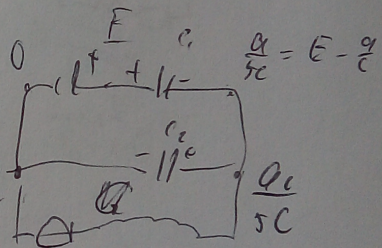 E
0
+ + -
C₁
q/5C = E - q/C
C₂
-
q₁/5C